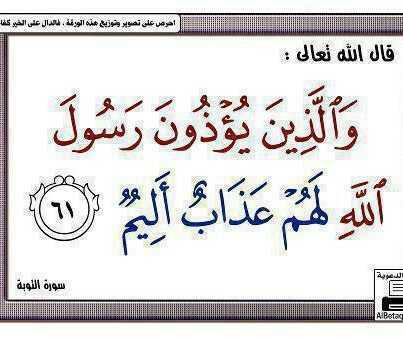 احرص على تصوير وتوزيع هذه الورقة ، فالدال على الخير كفا
قال الله تعالى :
وَٱلَّذِينَ يُؤۡذُونَ رَسُولَ
ٱللَّهِ لَهُمۡ عَذَابٌ أَلِيمٌ ٦١
سورة التوبة
الدعوية
AlBetaq